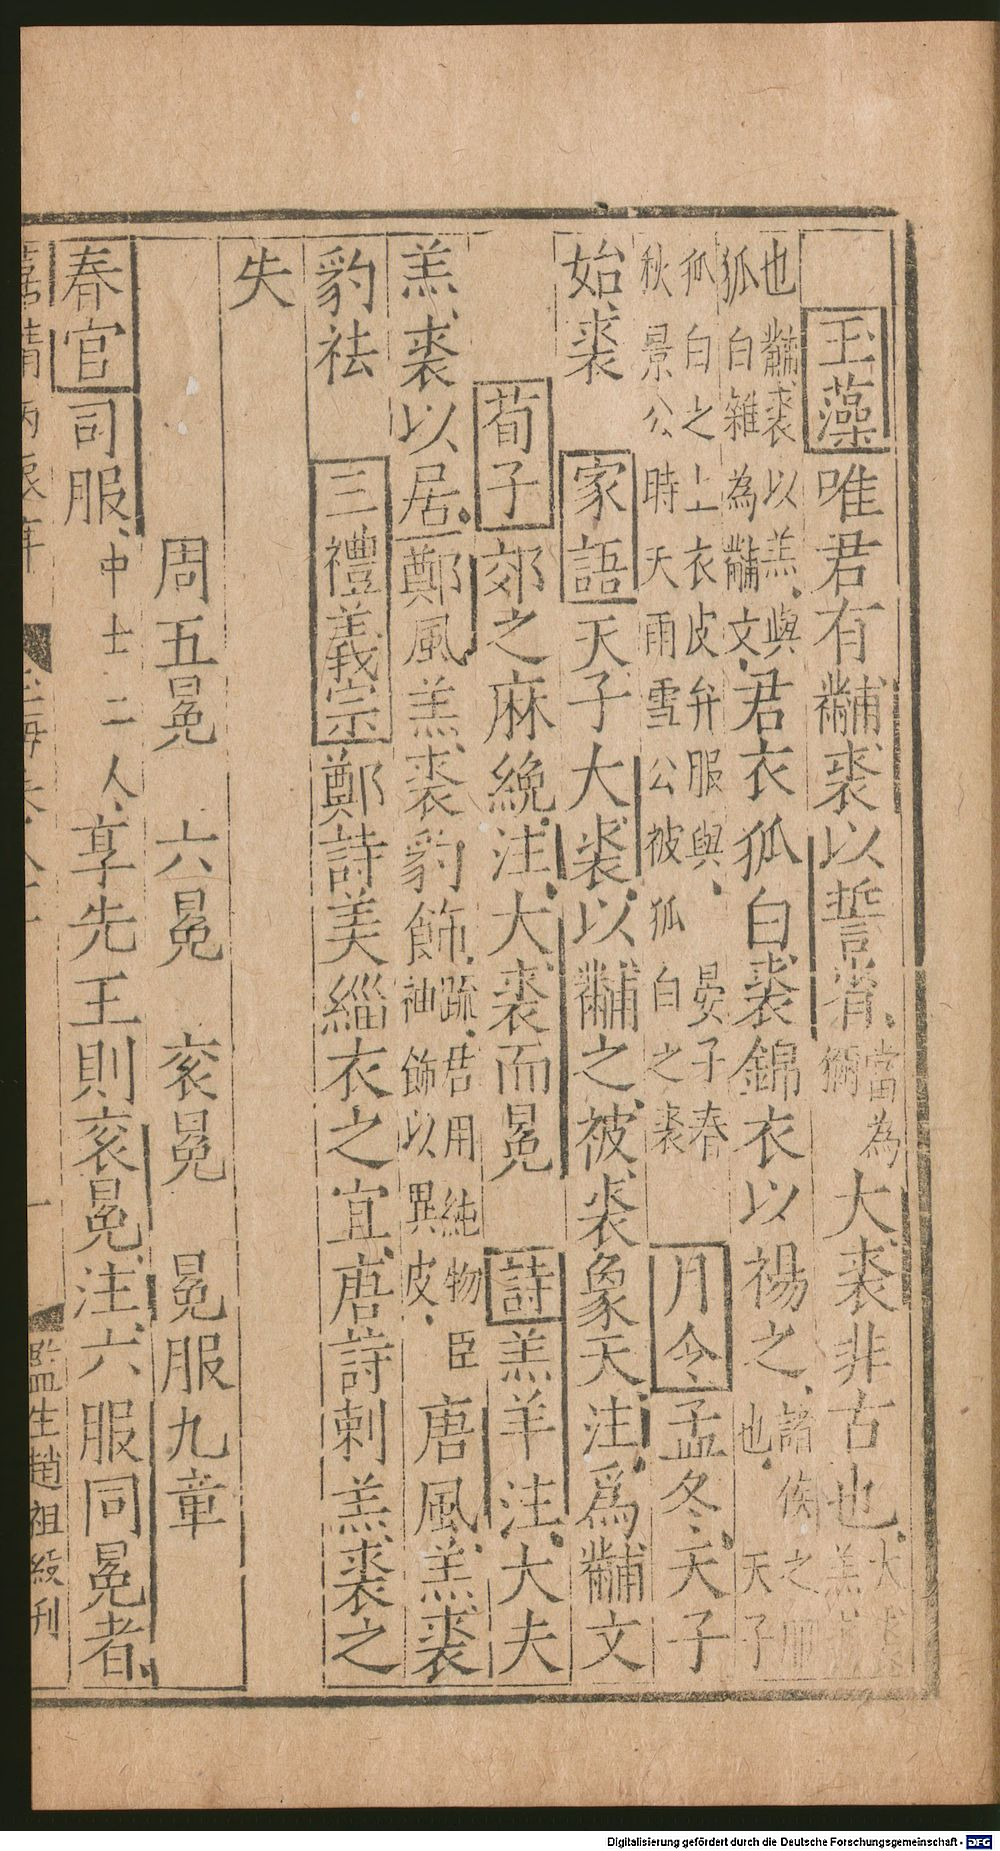 玉藻唯君有黼裘以誓省當為獮大裘非古也大裘羔裘
也黼裘以羔與狐白雜為黼文君衣狐白裘錦衣以裼之諸侯之服也天子
狐白之上衣皮弁服與晏子春秋景公時天雨雪公被狐白之裘月令孟冬天子
始裘家語天子大裘以黼之被裘象天注爲黼文
荀子郊之麻絻注大裘而冕詩羔羊注大夫
羔裘以居鄭風羔裘豹飾疏君用純物臣袖飾以異皮唐風羔裘
豹袪三禮義宗鄭詩美緇衣之宜唐詩刺羔裘之
失
周五冕 六冕 衮冕 冕服九章
春官司服中士二人享先王則衮冕注六服同冕者
嘉靖丙辰年 玉海卷八十 一 監生趙祖 刊
Digitalisierung gefördert durch die Deutsche Forschungsgemeinschaft - DFG